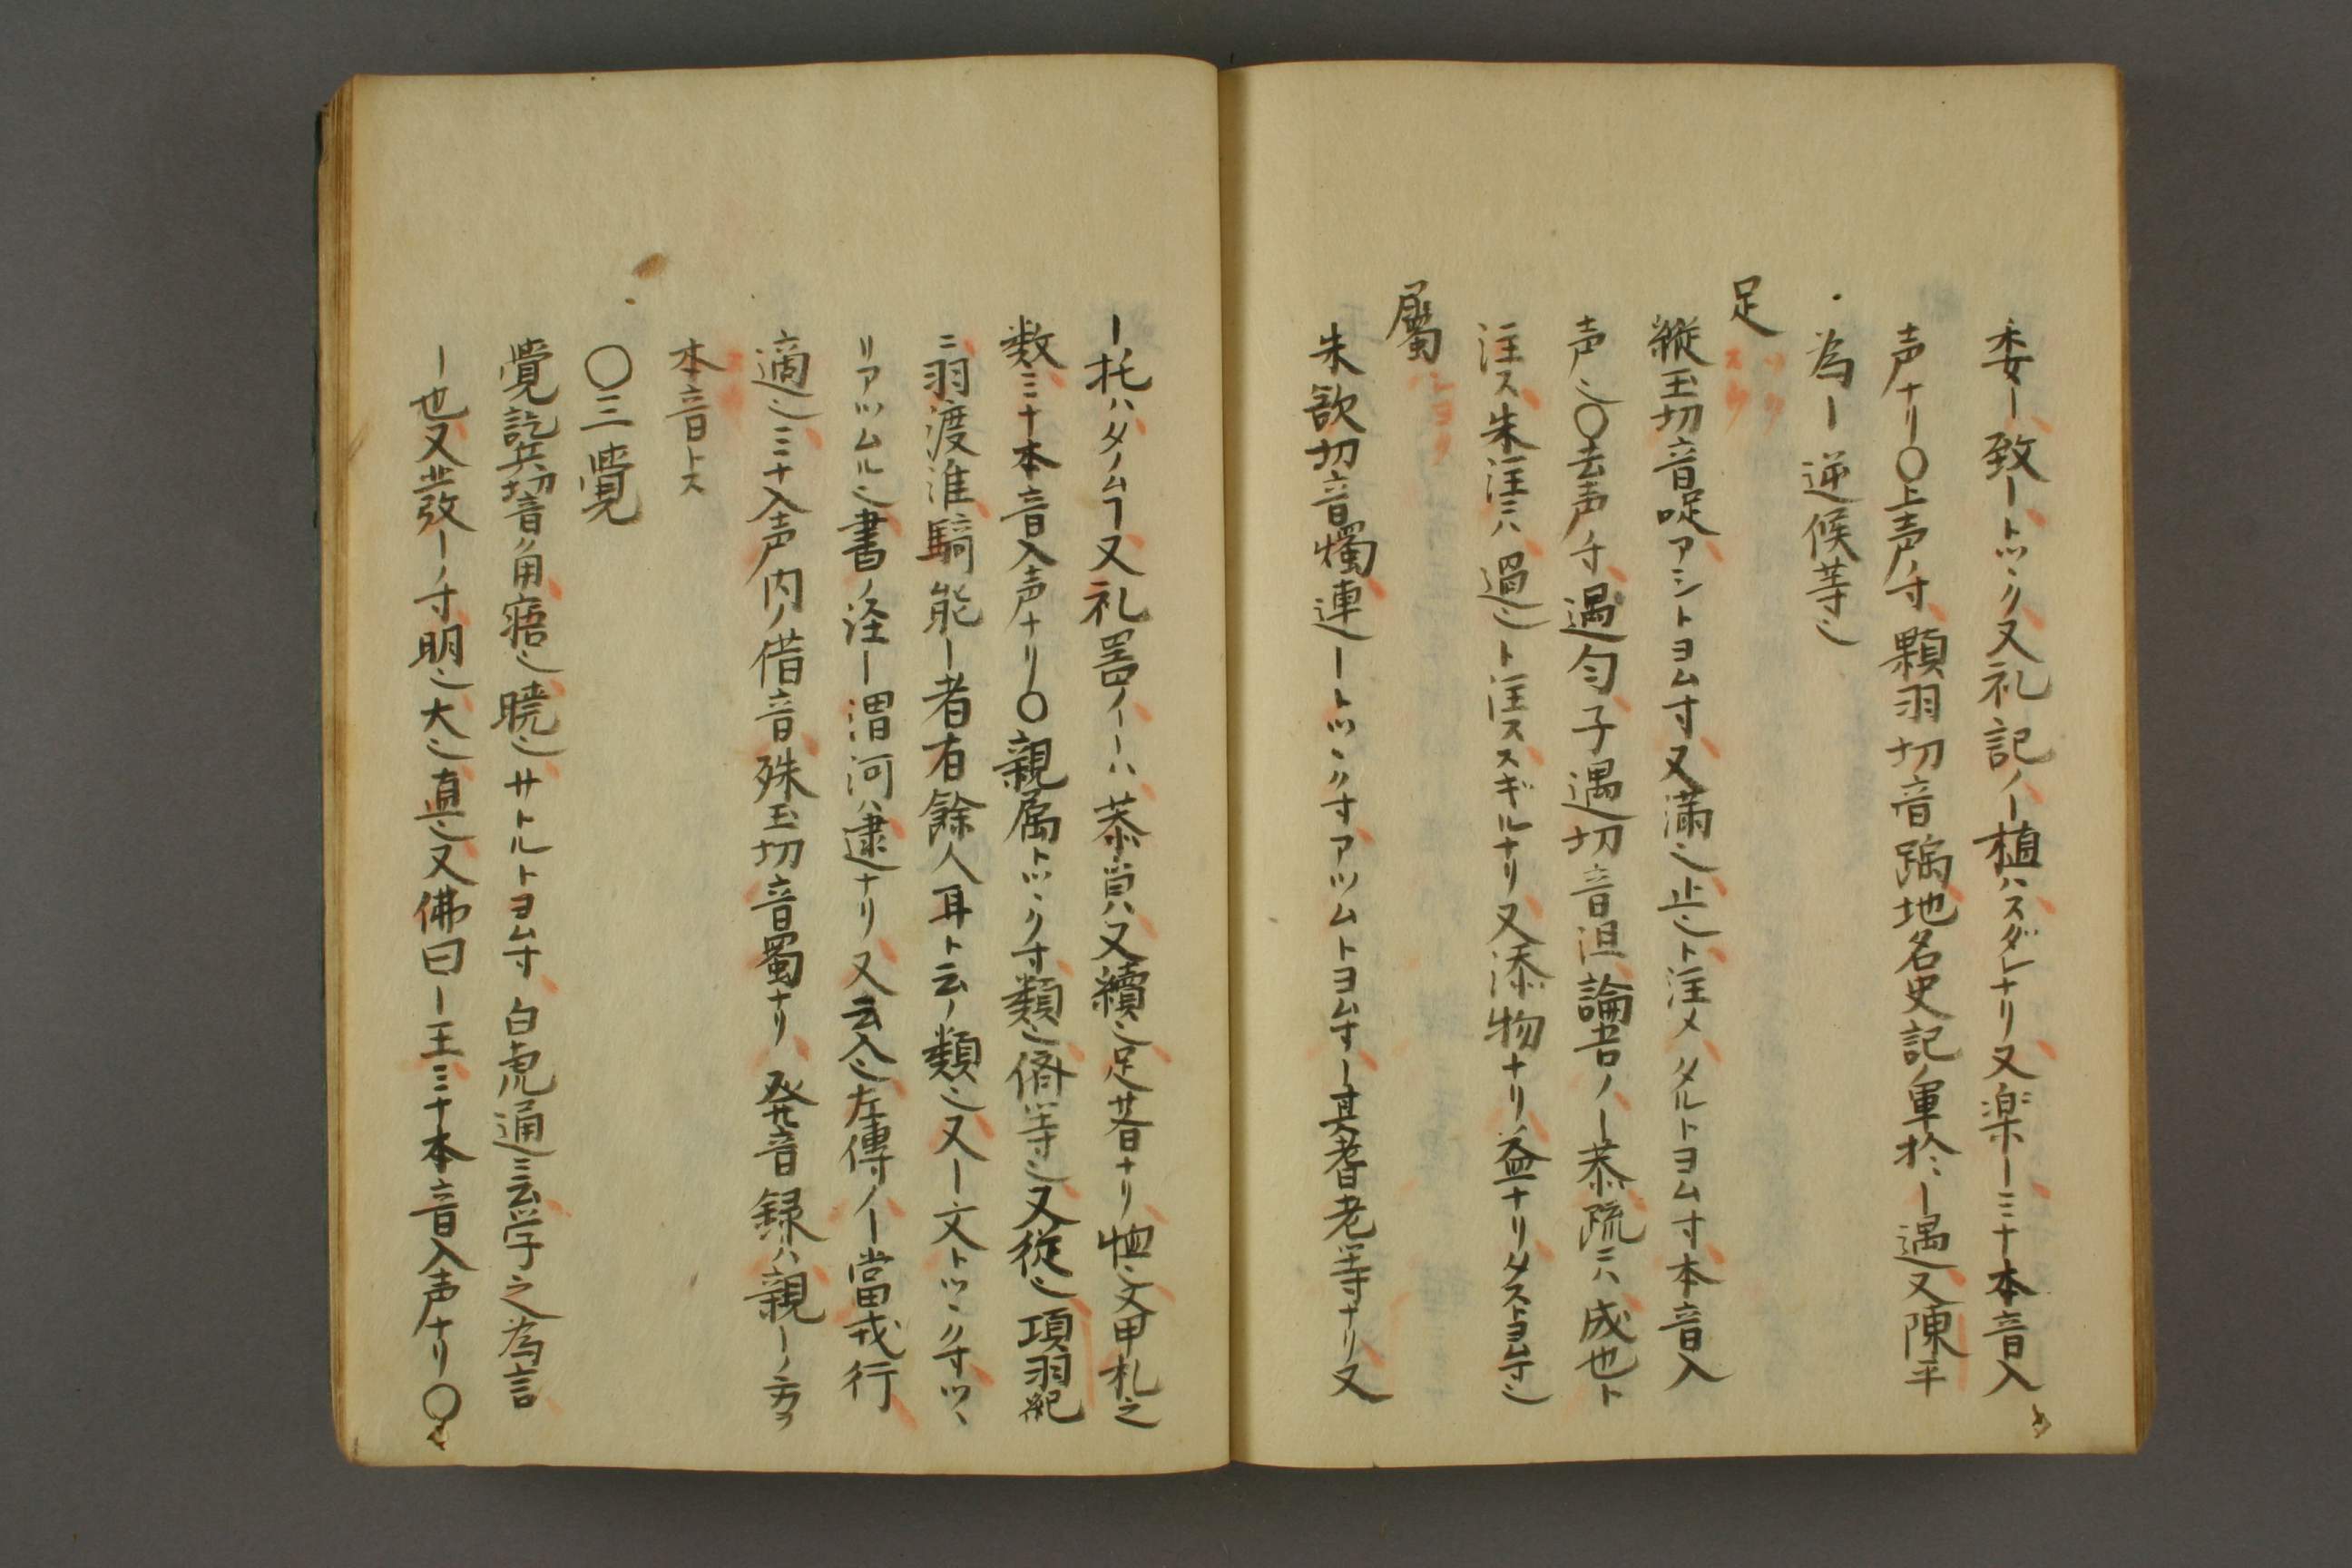 委ー致ートツヽク又礼記ノー植ハスダレナリ又楽ーミナ本音入
声ナリ〇上声ノ寸顆羽切音踽地名史記ノ軍於ー遇又陳平
為ー逆候等也
足
縦玉切音哫アシトヨム寸又満也止也ト注メタルトヨム寸本音入
声也〇去声ノ寸遇勻子遇切音沮論吾ノー恭疏ニハ成也ト
注ス朱注ニハ過也ト注ススギルナリ又添物ナリ益ナリタストヨム寸也
屬
朱欲切音燭連ートツヽク寸アツムトヨム寸ー其耆老等ナリ又
ー托ハタノムヿ又礼ノーハ恭㒵又續也足ナリ恤也又甲札之
数ミナ本音入声ナリ〇親属トツヽク寸類也儕等也又從也項羽紀
ニ羽渡淮騎能ー者百餘人耳ト云ノ類也又ー文トツヽク寸ツヽ
リアツムル也書ノ涇ー渭河ハ逮ナリ又云会也左傳ノー當戎行
適也ミナ入声内ノ借音殊玉切音蜀ナリ発音録ハ親ーノ方ヲ
本音トス
〇三覺
覺訖岳切音角寤也曉也サトルトヨム寸白虎通ニ云学之為言
ー也又發ーノ寸明也大也直也又佛曰ー王ミナ本音入声ナリ〇